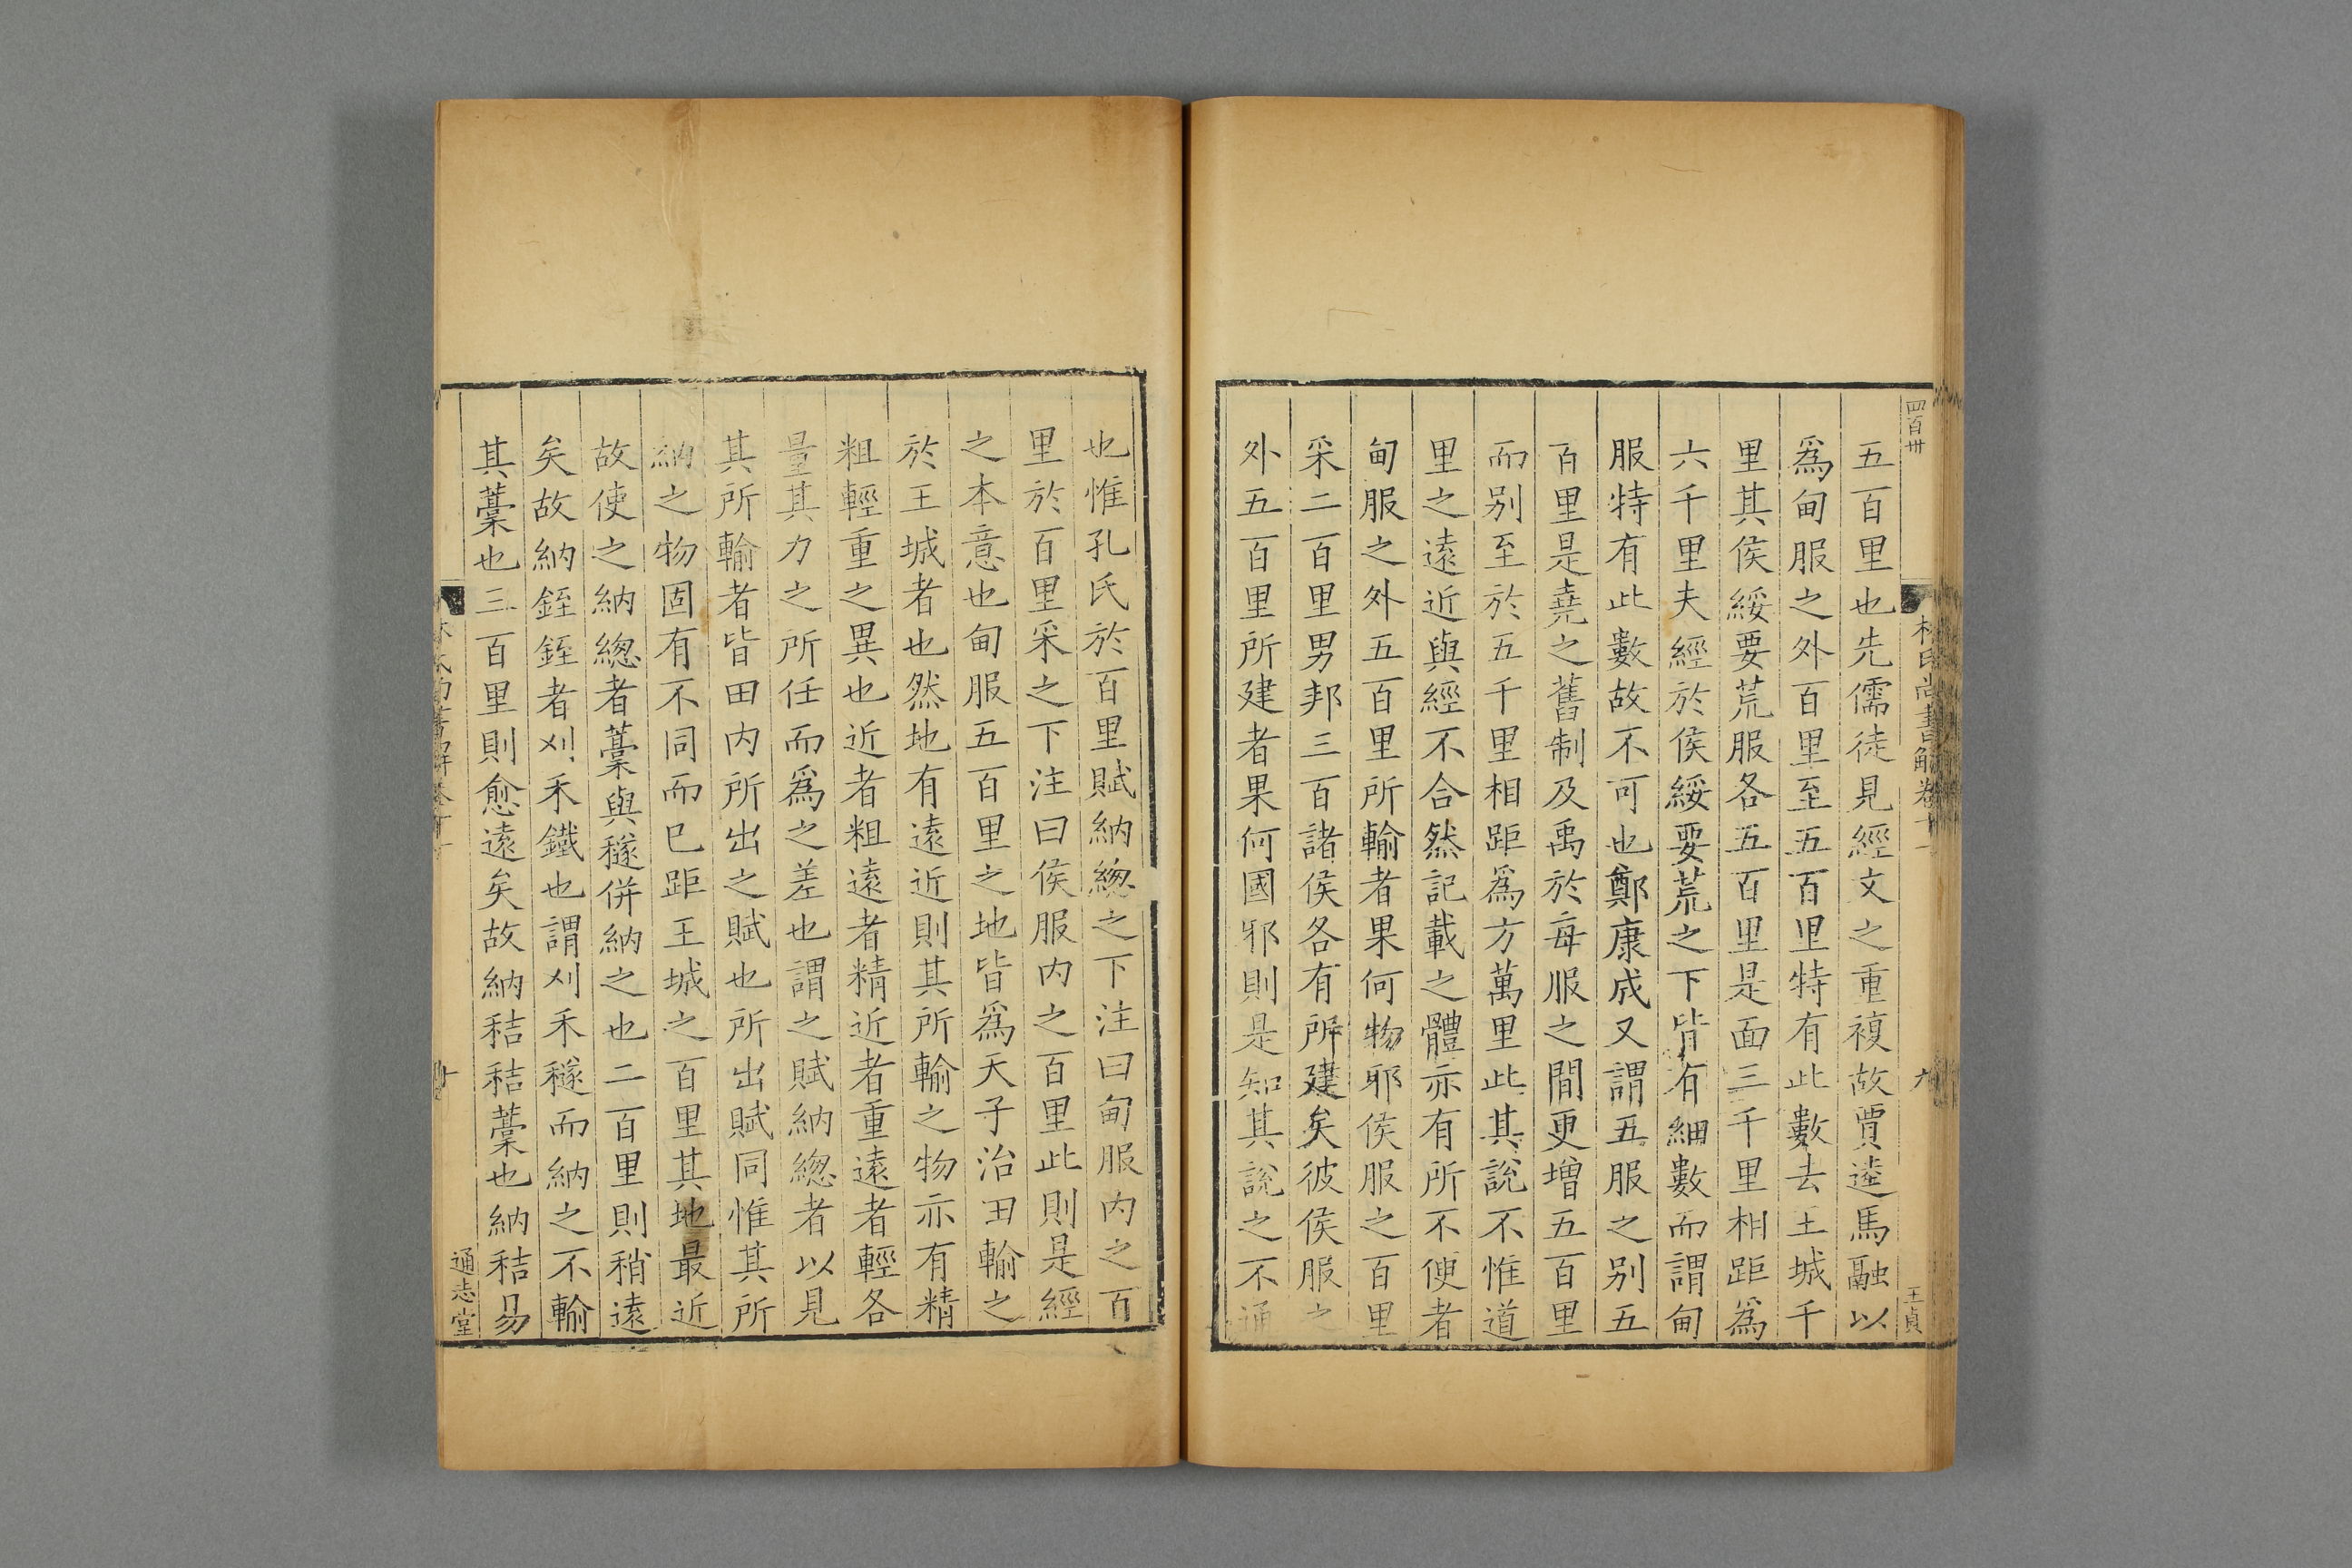 四百卅
林氏尚書解卷十一
九
王貞
五百里也先儒徒見經文之重複故賈逵馬融以
爲甸服之外百里至五百里特有此數去王城千
里其侯綏要荒服各五百里是面三千里相距爲
六千里夫經於侯綏要荒之下皆有細數而謂甸
服特有此數故不可也鄭康成又謂五服之别五
百里是堯之舊制及禹於每服之間更增五百里
而别至於五千里相距爲方萬里此其說不惟道
里之遠近與經不合然記載之體亦有所不便者
甸服之外五百里所輸者果何物邪侯服之百里
采二百里男邦三百諸侯各有所建矣彼侯服之
外五百里所建者果何國邪則是知其說之不通
也惟孔氏於百里賦納緫之下注曰甸服内之百
里於百里采之下注曰侯服内之百里此則是經
之本意也甸服五百里之地皆爲天子治田輸之
於王城者也然地有遠近則其所輸之物亦有精
粗輕重之異也近者粗遠者精近者重遠者輕各
量其力之所任而爲之差也謂之賦納緫者以見
其所輸者皆田内所出之賦也所出賦同惟其所
納之物固有不同而已距王城之百里其地最近
故使之納緫者藁與穟併納之也二百里則稍遠
矣故納銍銍者刈禾鐵也謂刈禾穟而納之不輸
其藁也三百里則愈遠矣故納秸秸藁也納秸易
通志堂